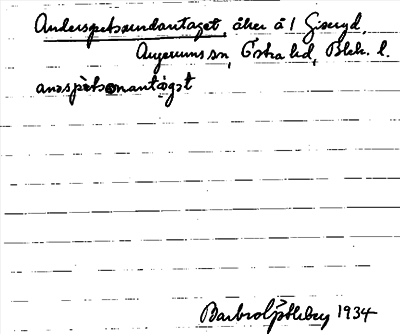 Anderspetsundantaget, åker å 1 Giseryd,
Augerums sn, Östra hd, Blek. l.
anəspètsonantàgət
Barbro Söderberg 1934